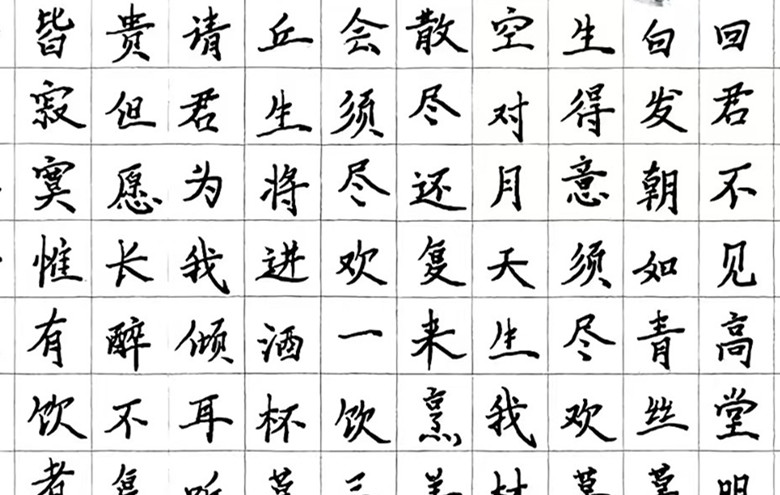 回君不见高堂明
白发朝如青丝暮
生得意须尽欢莫
空对月天生我材
散尽还复来烹羊
会须尽欢一饮三
丘生将进酒杯莫
请君为我倾耳听
贵但愿长醉不复
皆寂寞惟有饮者